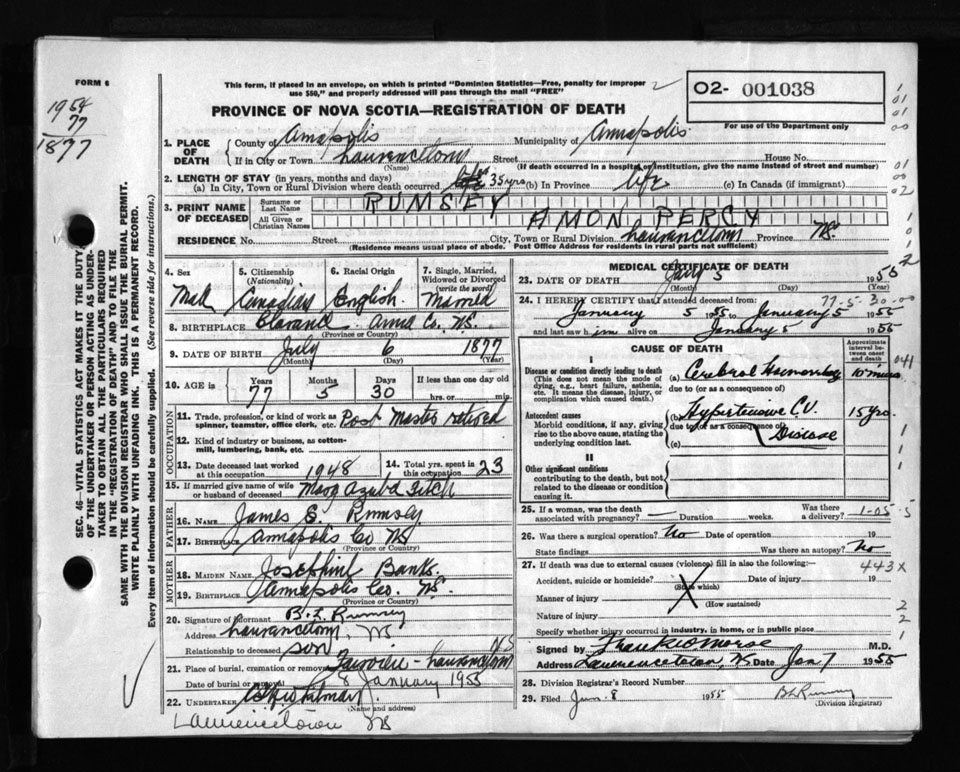 FORM 6
1954
77
1877
This form, if placed in an envelope, on which is printed "Dominion Statistics—Free, penalty for improper
use $50," and properly addressed will pass through the mail "FREE"
02- 001038
PROVINCE OF NOVA SCOTIA—REGISTRATION OF DEATH
For use of the Department only
1. PLACE OF DEATH
County of Annapolis Municipality of Annapolis
If in City or Town Lawrencetown Street House No.
(Name) (If death occurred in a hospital or institution, give the name instead of street and number)
2. LENGTH OF STAY (in years, months and days)
(a) In City, Town or Rural Division where death occurred 35 yrs (b) In Province life (c) In Canada (if immigrant)
3. PRINT NAME OF DECEASED
Surname or Last Name RUMSEY
All Given or Christian Names AMON PERCY
RESIDENCE No. Street City, Town or Rural Division Lawrencetown Province NS
(Residence means usual place of abode. Post Office Address for residents in rural parts not sufficient)
4. Sex Male
5. Citizenship (Nationality) Canadian
6. Racial Origin English
7. Single, Married, Widowed or Divorced (write the word) Married
8. BIRTHPLACE Clarence Anna Co. N.S.
(Province or Country)
9. DATE OF BIRTH July 6 1877
(Month) (Day) (Year)
10. AGE in Years 77 Months 5 Days 30 If less than one day old
hrs. or min.
OCCUPATION
11. Trade, profession, or kind of work as spinner, teamster, office clerk, etc. Post Master retired
12. Kind of industry or business, as cotton-mill, lumbering, bank, etc.
13. Date deceased last worked at this occupation 1948
14. Total yrs. spent in this occupation 23
15. If married give name of wife or husband of deceased Azuba Fitch
FATHER
16. NAME James E. Rumsey
17. BIRTHPLACE Annapolis Co NS
(Province or Country)
MOTHER
18. MAIDEN NAME Josephine Banks
19. BIRTHPLACE Annapolis Co. NS.
(Province or Country)
20. Signature of informant B. L. Rumsey
Address Lawrencetown, NS
Relationship to deceased son
21. Place of burial, cremation or removal Fairview - Lawrencetown NS
Date of burial or removal 8 January 1955
22. UNDERTAKER
(Name and address)
Lawrencetown NS
MEDICAL CERTIFICATE OF DEATH
23. DATE OF DEATH Jany 5 1955
(Month) (Day)
24. I HEREBY CERTIFY that I attended deceased from: 77-5-30-00
January 5 1955 to January 5 1955
and last saw him alive on January 5 1955
CAUSE OF DEATH
Approximate interval between onset and death
I
Disease or condition directly leading to death
(This does not mean the mode of dying, e.g., heart failure, asthenia, etc. It means the disease, injury, or complication which caused death.)
(a) Cerebral Haemorrhage 10 mins
due to (or as a consequence of)
041
Antecedent causes
Morbid conditions, if any, giving rise to the above cause, stating the underlying condition last.
(b) Hypertensive C.V. 15 yrs.
due to (or as a consequence of)
Disease
(c)
II
Other significant conditions
contributing to the death, but not related to the disease or condition causing it.
25. If a woman, was the death associated with pregnancy? — Duration weeks. Was there a delivery? 1-05-5
26. Was there a surgical operation? No Date of operation 19
State findings Was there an autopsy? No
27. If death was due to external causes (violence) fill in also the following:— 443X
Accident, suicide or homicide? Date of injury 19
(State which)
Manner of injury
(How sustained)
Nature of injury
Specify whether injury occurred in industry, in home, or in public place
Signed by Frank W Morse M.D.
Address Lawrencetown, NS Date Jan 7 1955
28. Division Registrar's Record Number
29. Filed Jan. 8 1955 B L Rumsey
(Division Registrar)
SEC. 46—VITAL STATISTICS ACT MAKES IT THE DUTY
OF THE UNDERTAKER OR PERSON ACTING AS UNDER-
TAKER TO OBTAIN ALL THE PARTICULARS REQUIRED
IN THE "REGISTRATION OF DEATH" AND TO FILE THE
SAME WITH THE DIVISION REGISTRAR WHO SHALL ISSUE THE BURIAL PERMIT.
WRITE PLAINLY WITH UNFADING INK. THIS IS A PERMANENT RECORD.
Every item of information should be carefully supplied. (See reverse side for instructions.)